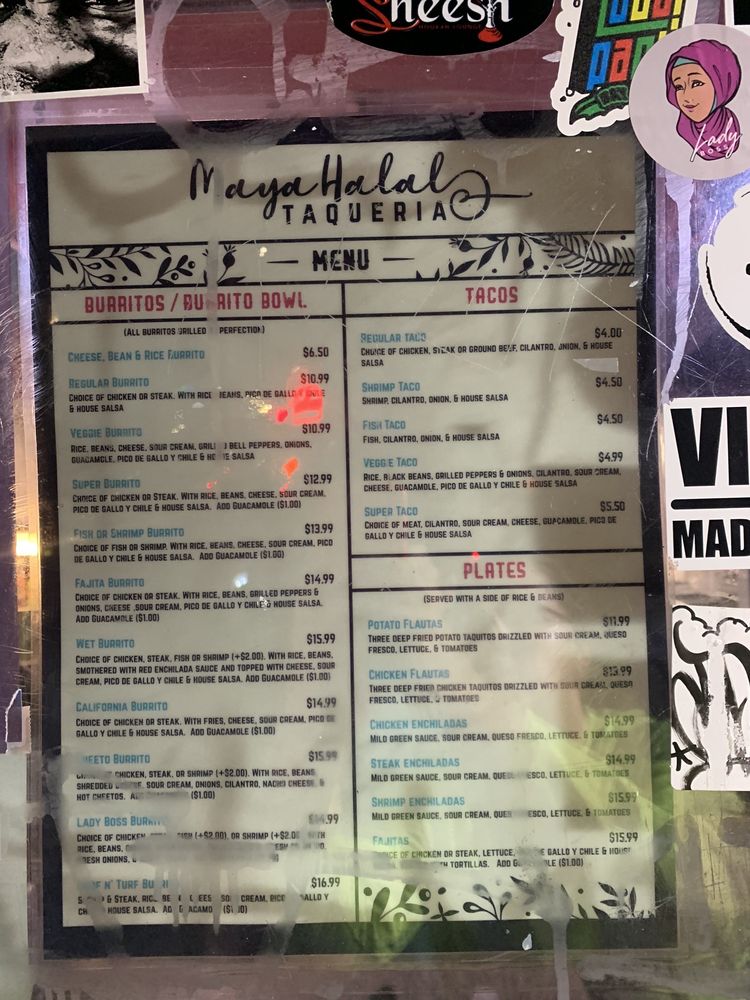 Sheesh
Lady
BOSS
Maya Halal
TAQUERIA
MENU
BURRITOS / BURRITO BOWL
(ALL BURRITOS GRILLED PERFECTION)
CHEESE, BEAN & RICE BURRITO $6.50
REGULAR BURRITO $10.99
CHOICE OF CHICKEN OR STEAK. WITH RICE BEANS, PICO DE GALLO Y CHILE
& HOUSE SALSA
VEGGIE BURRITO $10.99
RICE, BEANS, CHEESE, SOUR CREAM, GRILLED BELL PEPPERS, ONIONS,
GUACAMOLE, PICO DE GALLO Y CHILE & HOUSE SALSA
SUPER BURRITO $12.99
CHOICE OF CHICKEN OR STEAK. WITH RICE, BEANS, CHEESE, SOUR CREAM,
PICO DE GALLO Y CHILE & HOUSE SALSA. ADD GUACAMOLE ($1.00)
FISH OR SHRIMP BURRITO $13.99
CHOICE OF FISH OR SHRIMP. WITH RICE, BEANS, CHEESE, SOUR CREAM, PICO
DE GALLO Y CHILE & HOUSE SALSA. ADD GUACAMOLE ($1.00)
FAJITA BURRITO $14.99
CHOICE OF CHICKEN OR STEAK. WITH RICE, BEANS, GRILLED PEPPERS &
ONIONS, CHEESE ,SOUR CREAM, PICO DE GALLO Y CHILE & HOUSE SALSA.
ADD GUACAMOLE ($1.00)
WET BURRITO $15.99
CHOICE OF CHICKEN, STEAK, FISH OR SHRIMP (+$2.00). WITH RICE, BEANS,
SMOTHERED WITH RED ENCHILADA SAUCE AND TOPPED WITH CHEESE, SOUR
CREAM, PICO DE GALLO Y CHILE & HOUSE SALSA. ADD GUACAMOLE ($1.00)
CALIFORNIA BURRITO $14.99
CHOICE OF CHICKEN OR STEAK. WITH FRIES, CHEESE, SOUR CREAM, PICO DE
GALLO Y CHILE & HOUSE SALSA. ADD GUACAMOLE ($1.00)
CHEETO BURRITO $15.99
CHICKEN, STEAK, OR SHRIMP (+$2.00). WITH RICE, BEANS
SHREDDED CHEESE, SOUR CREAM, ONIONS, CILANTRO, NACHO CHEESE, &
HOT CHEETOS. ($1.00)
LADY BOSS BURRITO $14.99
CHOICE OF CHICKEN, FISH (+$2.00), OR SHRIMP (+$2.00 WITH
RICE, BEANS,
FRESH ONIONS,
SURF N' TURF BURRITO $16.99
& STEAK, RICE, BEANS CHEESE, SOUR CREAM, PICO GALLO Y
CHILE HOUSE SALSA. ADD GUACAMOLE ($1.00)
TACOS
REGULAR TACO $4.00
CHOICE OF CHICKEN, STEAK OR GROUND BEEF, CILANTRO, ONION, & HOUSE
SALSA
SHRIMP TACO $4.50
SHRIMP, CILANTRO, ONION, & HOUSE SALSA
FISH TACO $4.50
FISH, CILANTRO, ONION, & HOUSE SALSA
VEGGIE TACO $4.99
RICE, BLACK BEANS, GRILLED PEPPERS & ONIONS, CILANTRO, SOUR CREAM,
CHEESE, GUACAMOLE, PICO DE GALLO Y CHILE & HOUSE SALSA
SUPER TACO $5.50
CHOICE OF MEAT, CILANTRO, SOUR CREAM, CHEESE, GUACAMOLE, PICO DE
GALLO Y CHILE & HOUSE SALSA
PLATES
(SERVED WITH A SIDE OF RICE & BEANS)
POTATO FLAUTAS $11.99
THREE DEEP FRIED POTATO TAQUITOS DRIZZLED WITH SOUR CREAM, QUESO
FRESCO, LETTUCE, & TOMATOES
CHICKEN FLAUTAS $13.99
THREE DEEP FRIED CHICKEN TAQUITOS DRIZZLED WITH SOUR CREAM, QUESO
FRESCO, LETTUCE, & TOMATOES
CHICKEN ENCHILADAS $14.99
MILD GREEN SAUCE, SOUR CREAM, QUESO FRESCO, LETTUCE, & TOMATOES
STEAK ENCHILADAS $14.99
MILD GREEN SAUCE, SOUR CREAM, QUESO FRESCO, LETTUCE, & TOMATOES
SHRIMP ENCHILADAS $15.99
MILD GREEN SAUCE, SOUR CREAM, QUESO FRESCO, LETTUCE, & TOMATOES
FAJITAS $15.99
CHOICE OF CHICKEN OR STEAK, LETTUCE, PICO DE GALLO Y CHILE & HOUSE
WITH TORTILLAS. ADD GUACAMOLE ($1.00)
VI
MAD